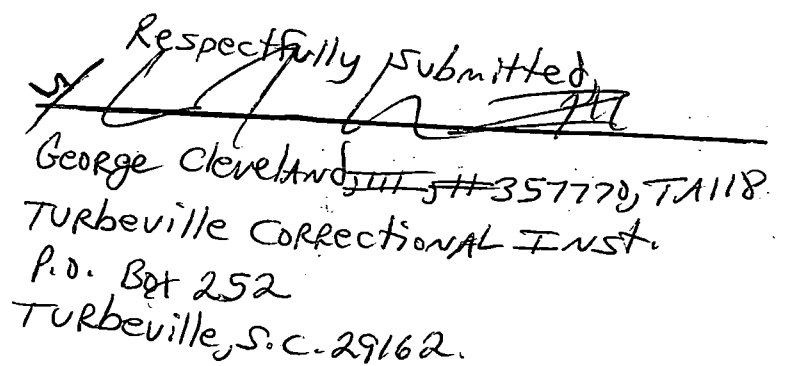 Respectfully submitted,
S/
George Cleveland, III, #357770, TA118
Turbeville Correctional Inst.
P.O. Box 252
Turbeville, S.C. 29162.